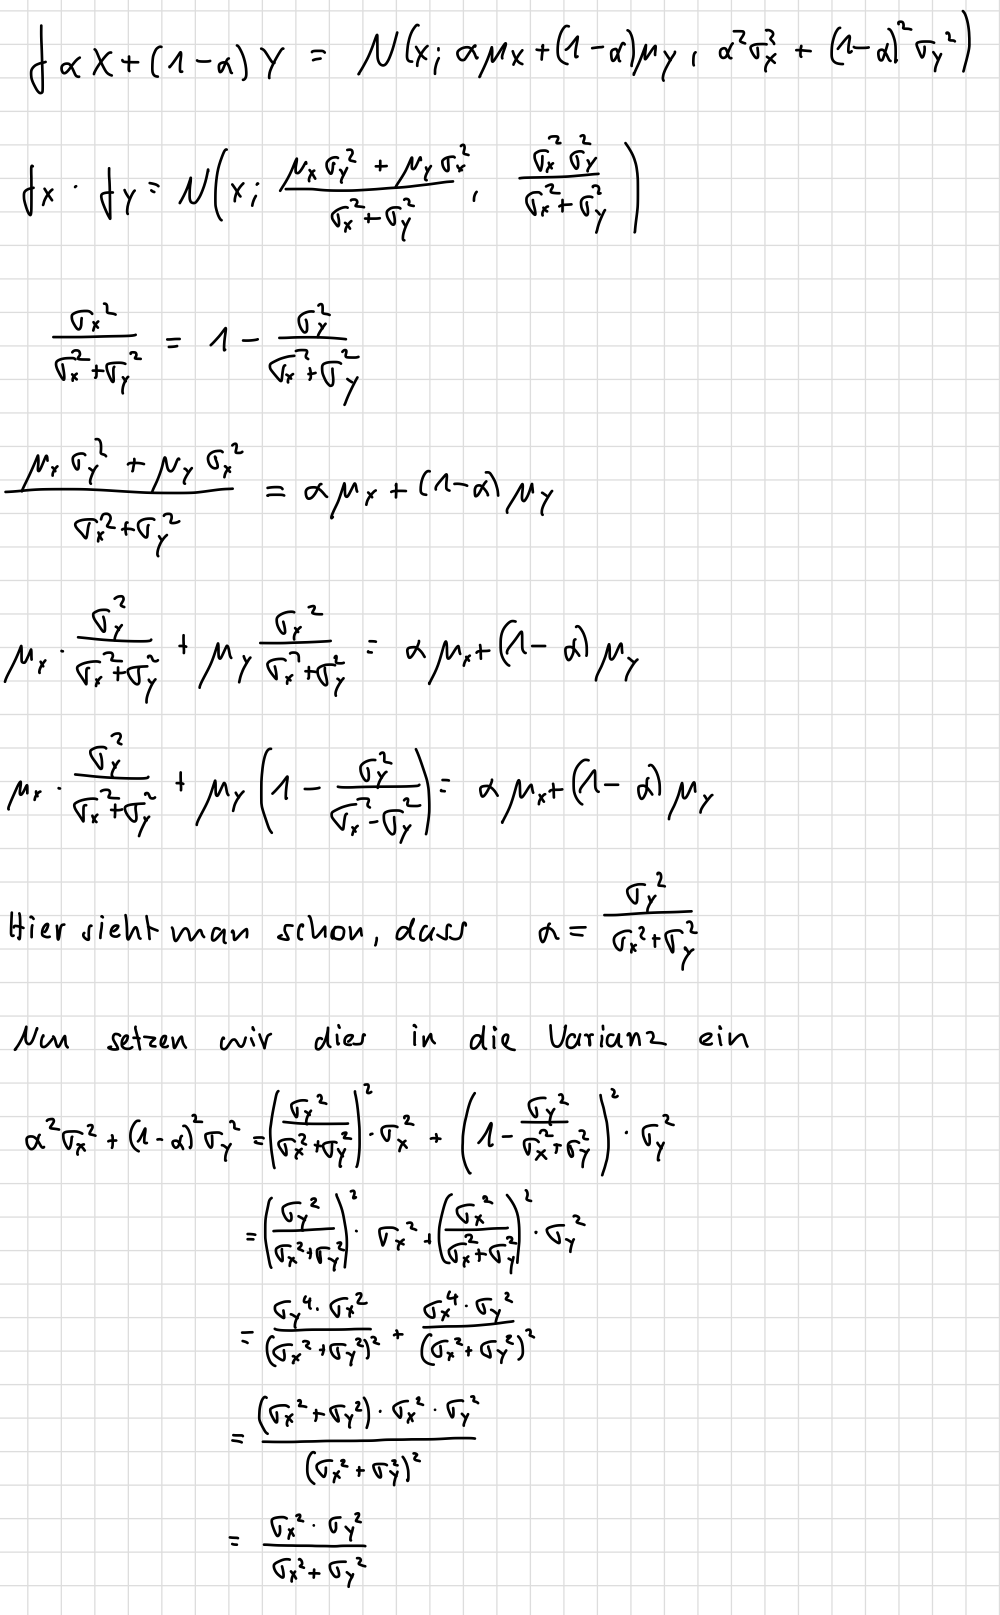 f αX+(1-α)Y = N(x; αμx+(1-α)μy, α²σx²+(1-α)²σy²)
fx · fy = N(x; (μxσy²+μyσx²)/(σx²+σy²), (σx²σy²)/(σx²+σy²))
σx²/(σx²+σy²) = 1 - σy²/(σx²+σy²)
(μxσy²+μyσx²)/(σx²+σy²) = αμx+(1-α)μy
μx · σy²/(σx²+σy²) + μy σx²/(σx²+σy²) = αμx+(1-α)μy
μx · σy²/(σx²+σy²) + μy (1 - σy²/(σx²-σy²)) = αμx+(1-α)μy
Hier sieht man schon, dass α = σy²/(σx²+σy²)
Nun setzen wir dies in die Varianz ein
α²σx²+(1-α)²σy² = (σy²/(σx²+σy²))² · σx² + (1 - σy²/(σx²+σy²))² · σy²
= (σy²/(σx²+σy²))² · σx² + (σx²/(σx²+σy²))² · σy²
= (σy⁴·σx²)/(σx²+σy²)² + (σx⁴·σy²)/(σx²+σy²)²
= ((σx²+σy²)·σx²·σy²)/(σx²+σy²)²
= (σx²·σy²)/(σx²+σy²)